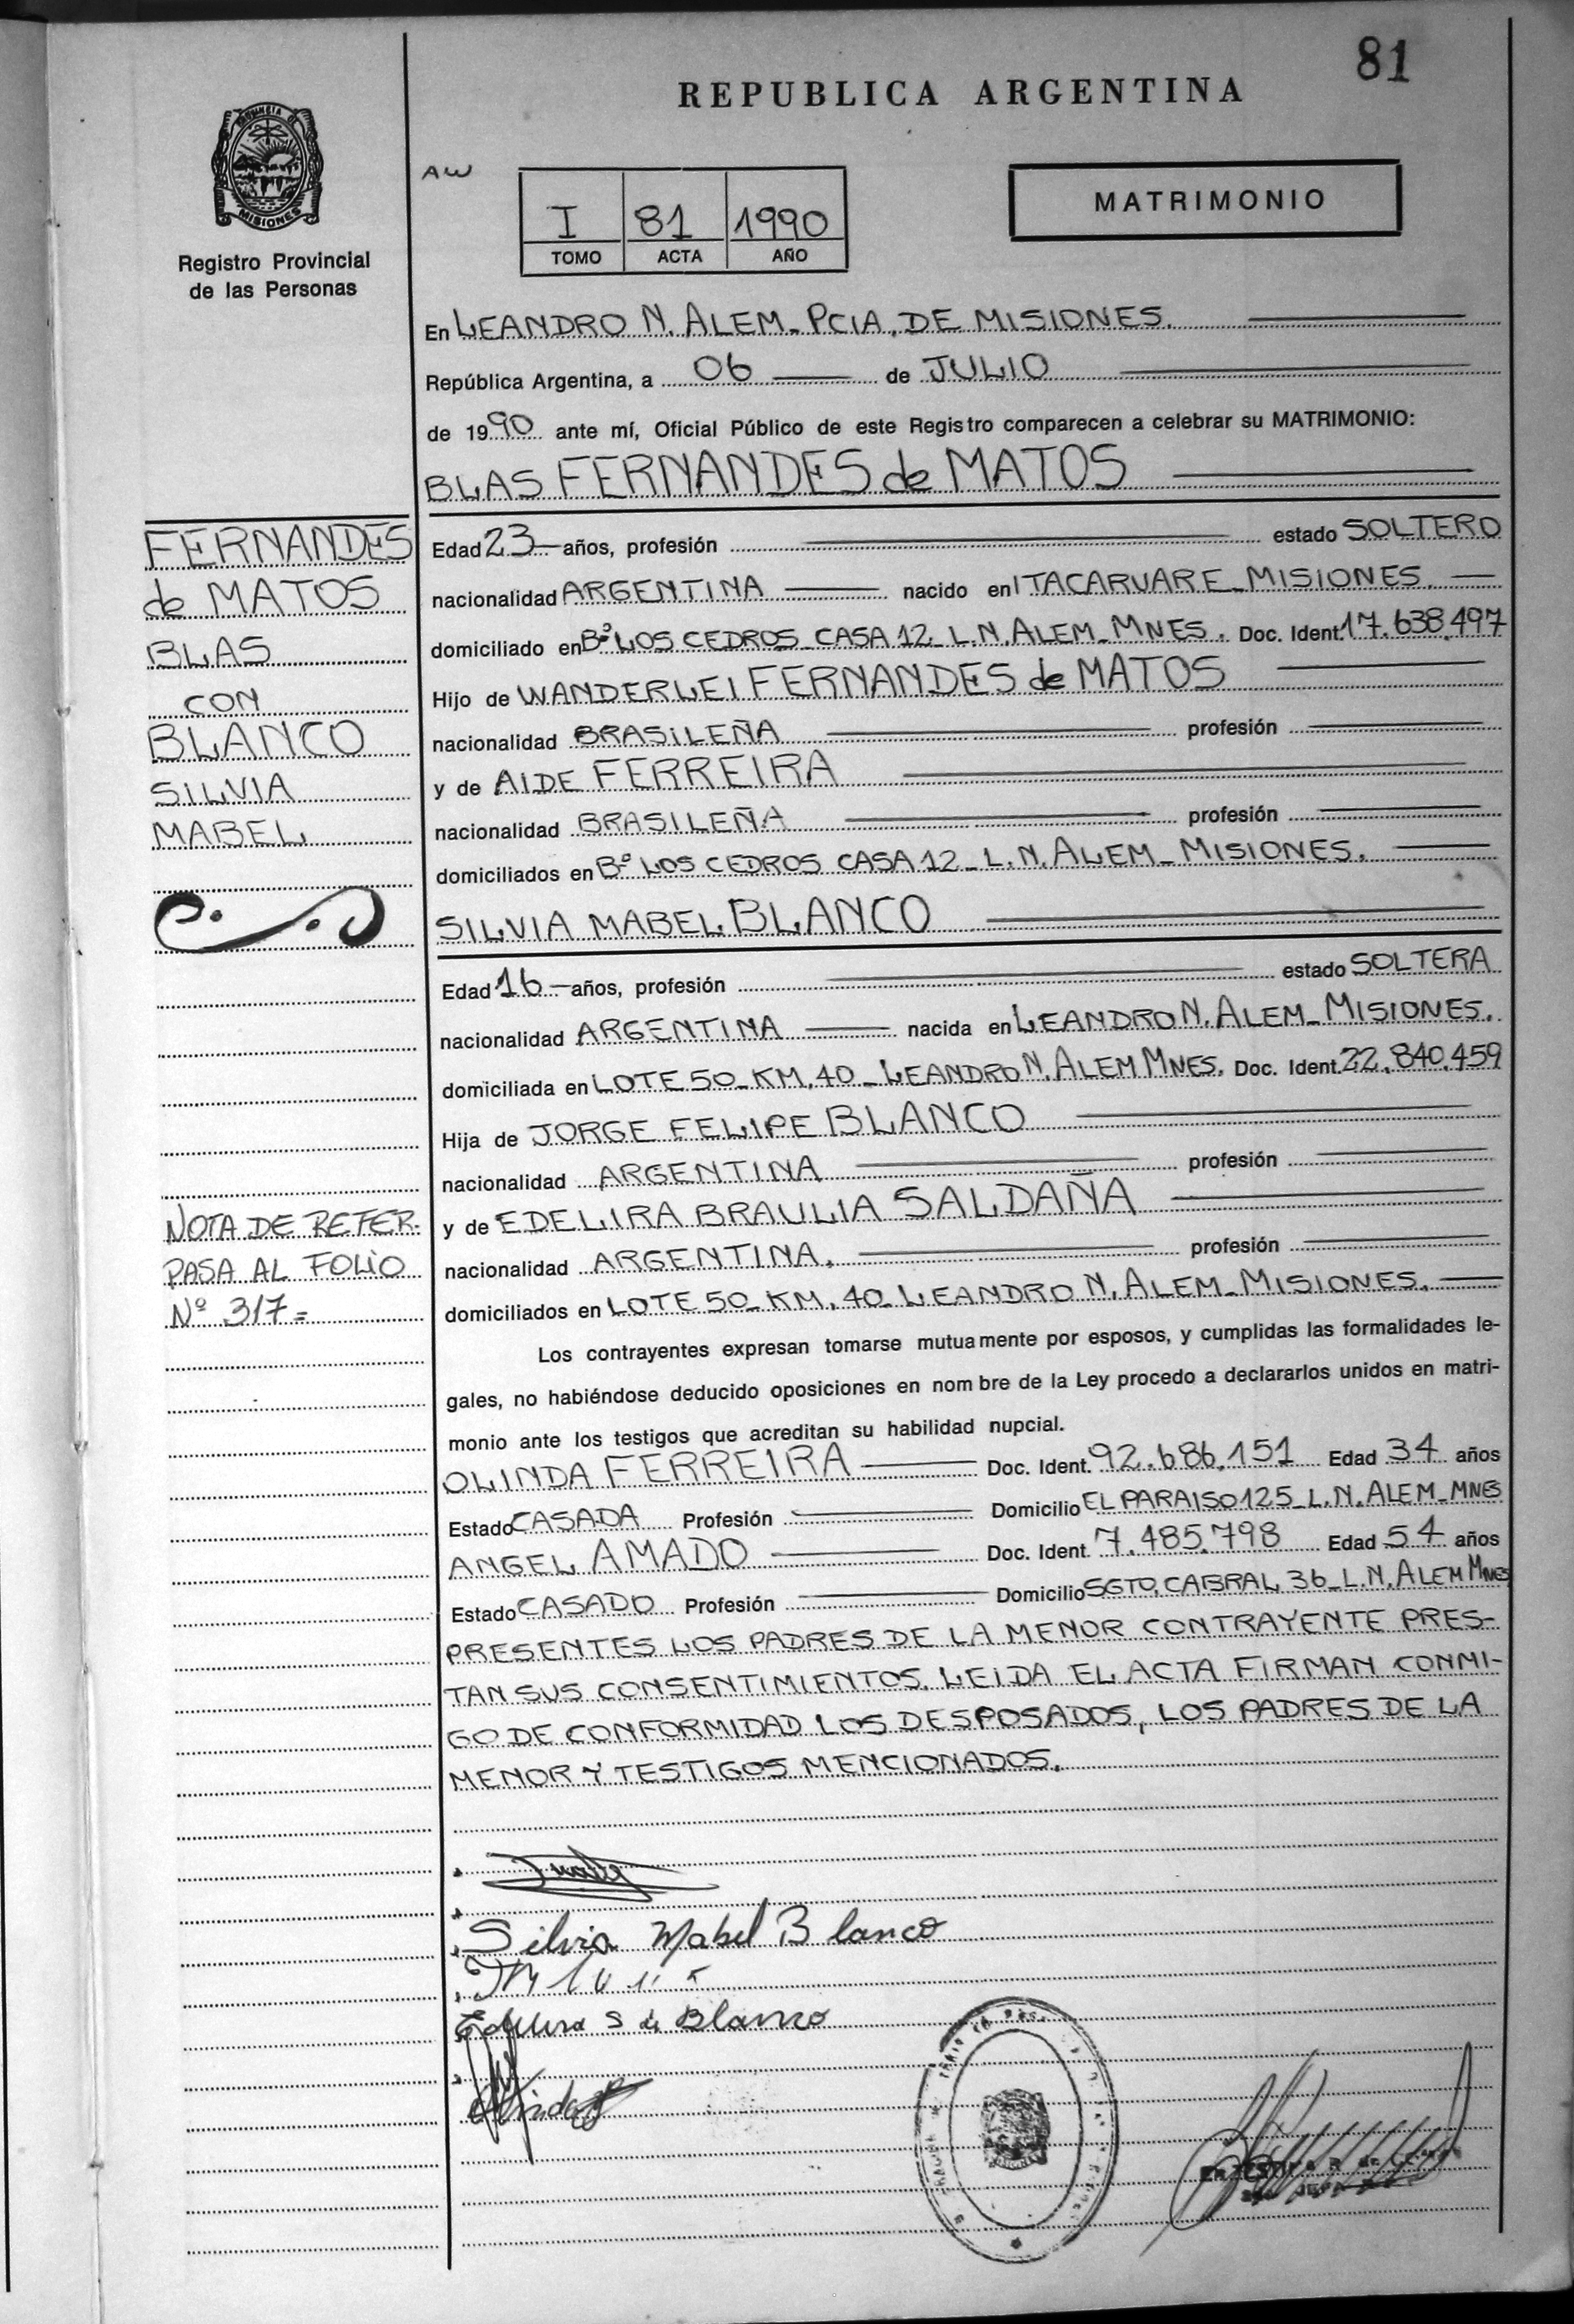 81
REPUBLICA ARGENTINA
PROVINCIA DE
MISIONES
Registro Provincial
de las Personas
AW
I 81 1990
TOMO ACTA AÑO
MATRIMONIO
En LEANDRO N. ALEM_PCIA. DE MISIONES.
República Argentina, a 06 de JULIO
de 1990 ante mí, Oficial Público de este Registro comparecen a celebrar su MATRIMONIO:
BLAS FERNANDES de MATOS
FERNANDES
de MATOS
BLAS
CON
BLANCO
SILVIA
MABEL
Edad 23 años, profesión estado SOLTERO
nacionalidad ARGENTINA nacido en ITACARUARE_MISIONES.
domiciliado en Bº LOS CEDROS_CASA 12_L.N.ALEM_MNES. Doc. Ident. 17.638.497
Hijo de WANDERLEI FERNANDES de MATOS
nacionalidad BRASILEÑA profesión
y de AIDE FERREIRA
nacionalidad BRASILEÑA profesión
domiciliados en Bº LOS CEDROS CASA 12_L.N.ALEM_MISIONES.
SILVIA MABEL BLANCO
Edad 16 años, profesión estado SOLTERA
nacionalidad ARGENTINA nacida en LEANDRO N. ALEM_MISIONES.
domiciliada en LOTE 50_KM.40_LEANDRO N. ALEM MNES. Doc. Ident. 22.840.459
Hija de JORGE FELIPE BLANCO
nacionalidad ARGENTINA profesión
y de EDELIRA BRAULIA SALDAÑA
nacionalidad ARGENTINA. profesión
domiciliados en LOTE 50_KM.40_LEANDRO N. ALEM_MISIONES.
NOTA DE REFER.
PASA AL FOLIO
Nº 317=
Los contrayentes expresan tomarse mutuamente por esposos, y cumplidas las formalidades le-
gales, no habiéndose deducido oposiciones en nombre de la Ley procedo a declararlos unidos en matri-
monio ante los testigos que acreditan su habilidad nupcial.
OLINDA FERREIRA Doc. Ident. 92.686.151 Edad 34 años
Estado CASADA Profesión Domicilio EL PARAISO 125_L.N.ALEM_MNES
ANGEL AMADO Doc. Ident. 7.485.798 Edad 54 años
Estado CASADO Profesión Domicilio SGTO. CABRAL 36_L.N.ALEM MNES
PRESENTES LOS PADRES DE LA MENOR CONTRAYENTE PRES-
TAN SUS CONSENTIMIENTOS. LEIDA EL ACTA FIRMAN CONMI-
GO DE CONFORMIDAD LOS DESPOSADOS, LOS PADRES DE LA
MENOR Y TESTIGOS MENCIONADOS.
Silvia Mabel Blanco
S de Blanco